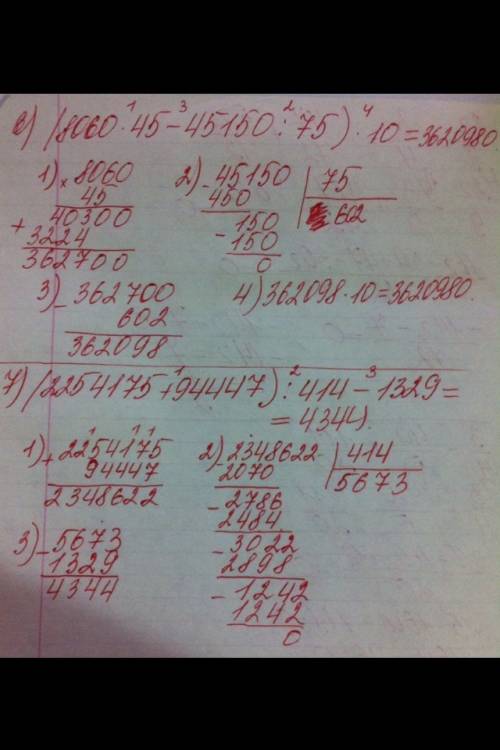 6) (8060 · 45 - 45150 : 75) · 10 = 3620980
1) × 8060
45
40300
+ 3224
362700
2) - 45150 | 75
450 602
150
- 150
0
3) - 362700
602
362098
4) 362098 · 10 = 3620980.
7) (2254175 + 94447) : 414 - 1329 =
= 4344.
1) + 2254175
94447
2348622
2) - 2348622 | 414
2070 5673
- 2786
2484
- 3022
2898
- 1242
1242
0
3) - 5673
1329
4344